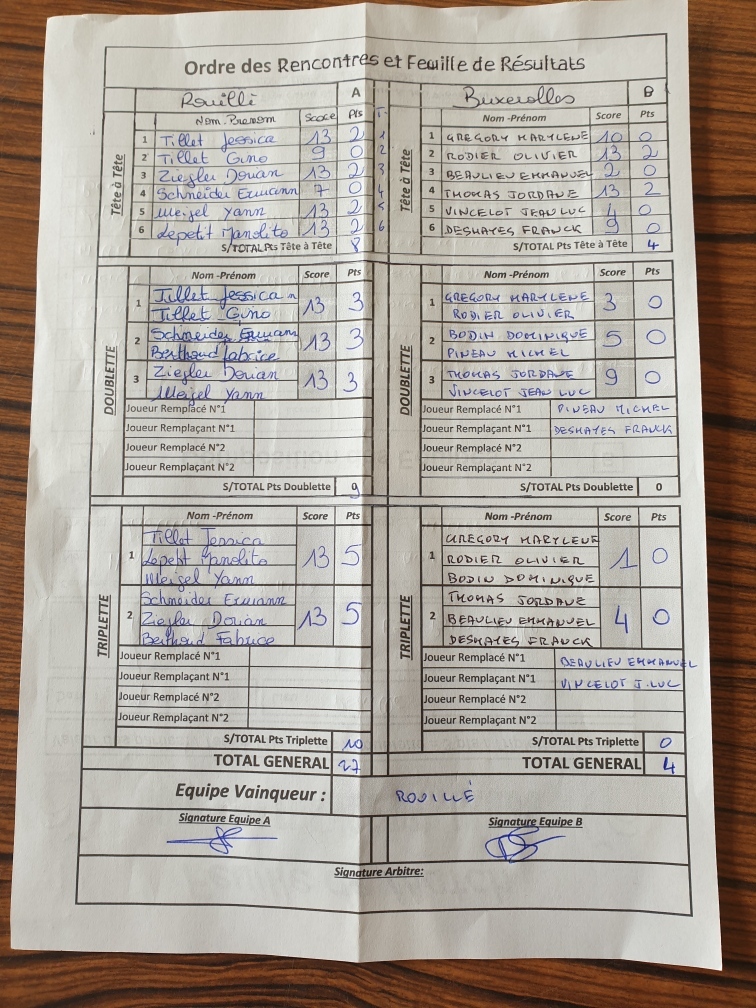 Ordre des Rencontres et Feuille de Résultats
Rouillé A Buxerolles B
Nom-Prénom Score Pts Nom -Prénom Score Pts
Tête à Tête
1 Tillet Jessica 13 2 1 GREGORY MARYLENE 10 0
2 Tillet Gino 9 0 2 RODIER OLIVIER 13 2
3 Ziegler Dorian 13 2 3 BEAULIEU EMMANUEL 2 0
4 Schneider Erwann 7 0 4 THOMAS JORDANE 13 2
5 Weigel Yann 13 2 5 VINCELOT JEAN LUC 4 0
6 Lepetit Manolito 13 2 6 DESHAYES FRANCK 9 0
S/TOTAL Pts Tête à Tête 8 S/TOTAL Pts Tête à Tête 4
Nom -Prénom Score Pts Nom -Prénom Score Pts
DOUBLETTE
1 Tillet Jessica 13 3 1 GREGORY MARYLENE 3 0
Tillet Gino RODIER OLIVIER
2 Schneider Erwann 13 3 2 BODIN DOMINIQUE 5 0
Berthoud fabrice PINEAU MICHEL
3 Ziegler Dorian 13 3 3 THOMAS JORDANE 9 0
Weigel Yann VINCELOT JEAN LUC
Joueur Remplacé N°1 Joueur Remplacé N°1 PINEAU MICHEL
Joueur Remplaçant N°1 Joueur Remplaçant N°1 DESHAYES FRANCK
Joueur Remplacé N°2 Joueur Remplacé N°2
Joueur Remplaçant N°2 Joueur Remplaçant N°2
S/TOTAL Pts Doublette 9 S/TOTAL Pts Doublette 0
Nom -Prénom Score Pts Nom -Prénom Score Pts
TRIPLETTE
Tillet Jessica GREGORY MARYLENE
1 Lepetit Manolito 13 5 1 RODIER OLIVIER 1 0
Weigel Yann BODIN DOMINIQUE
Schneider Erwann THOMAS JORDANE
2 Ziegler Dorian 13 5 2 BEAULIEU EMMANUEL 4 0
Berthoud Fabrice DESHAYES FRANCK
Joueur Remplacé N°1 Joueur Remplacé N°1 BEAULIEU EMMANUEL
Joueur Remplaçant N°1 Joueur Remplaçant N°1 VINCELOT J.LUC
Joueur Remplacé N°2 Joueur Remplacé N°2
Joueur Remplaçant N°2 Joueur Remplaçant N°2
S/TOTAL Pts Triplette 10 S/TOTAL Pts Triplette 0
TOTAL GENERAL 27 TOTAL GENERAL 4
Equipe Vainqueur : ROUILLÉ
Signature Equipe A Signature Equipe B
Signature Arbitre: